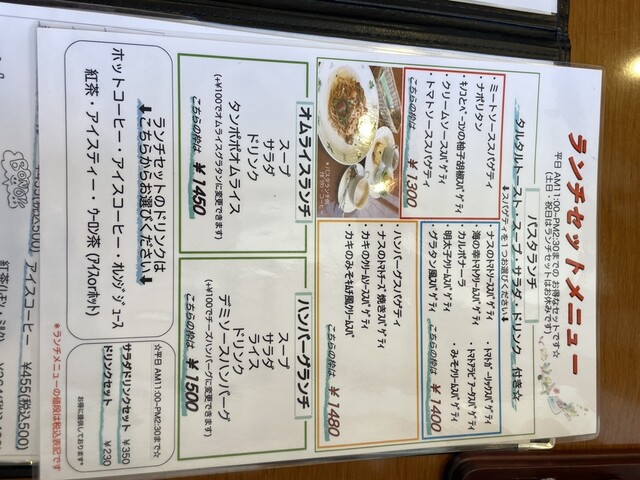 ランチセットメニュー
平日 AM11:00~PM2:30までの お得なセットです☆
(土日・祝日はランチセットはお休みです)
パスタランチ
タルタルトースト・スープ・サラダ・ドリンク 付き☆
⬇スパゲティを1つお選びください⬇
・ミートソーススパゲティ
・ナポリタン
・キノコとベーコンの柚子胡椒スパゲティ
・クリームソーススパゲティ
・トマトソーススパゲティ
こちらの枠は ¥1300
・ナスのトマトソーススパゲティ
・海の幸トマトクリームスパゲティ
・カルボナーラ
・明太子クリームスパゲティ
・グラタン風スパゲティ
・トマトガーリックスパゲティ
・トマトアラビアータスパゲティ
・みそクリームスパゲティ
こちらの枠は ¥1400
・ハンバーグスパゲティ
・ナスのトマトチーズ焼きスパゲティ
・カキのクリームソーススパゲティ
・カキのみそキムチ風クリームスパ
こちらの枠は ¥1480
*パスタランチ例*
オムライスランチ
スープ
サラダ
ドリンク
タンポポオムライス
(+¥100でオムライスグラタンに変更できます)
こちらの枠は ¥1450
ハンバーグランチ
スープ
サラダ
ライス
ドリンク
デミソースハンバーグ
(+¥100でチーズハンバーグに変更できます)
こちらの枠は ¥1500
ランチセットのドリンクは
⬇こちらからお選びください⬇
ホットコーヒー・アイスコーヒー・オレンジジュース
紅茶・アイスティー・ウーロン茶(アイスorホット)
☆平日 AM11:00~PM2:30まで☆
サラダドリンクセット ¥350
ドリンクセット ¥230
お得に提供しております
*ランチメニューの価格は税込表記です
アイスコーヒー ¥455(税込500)